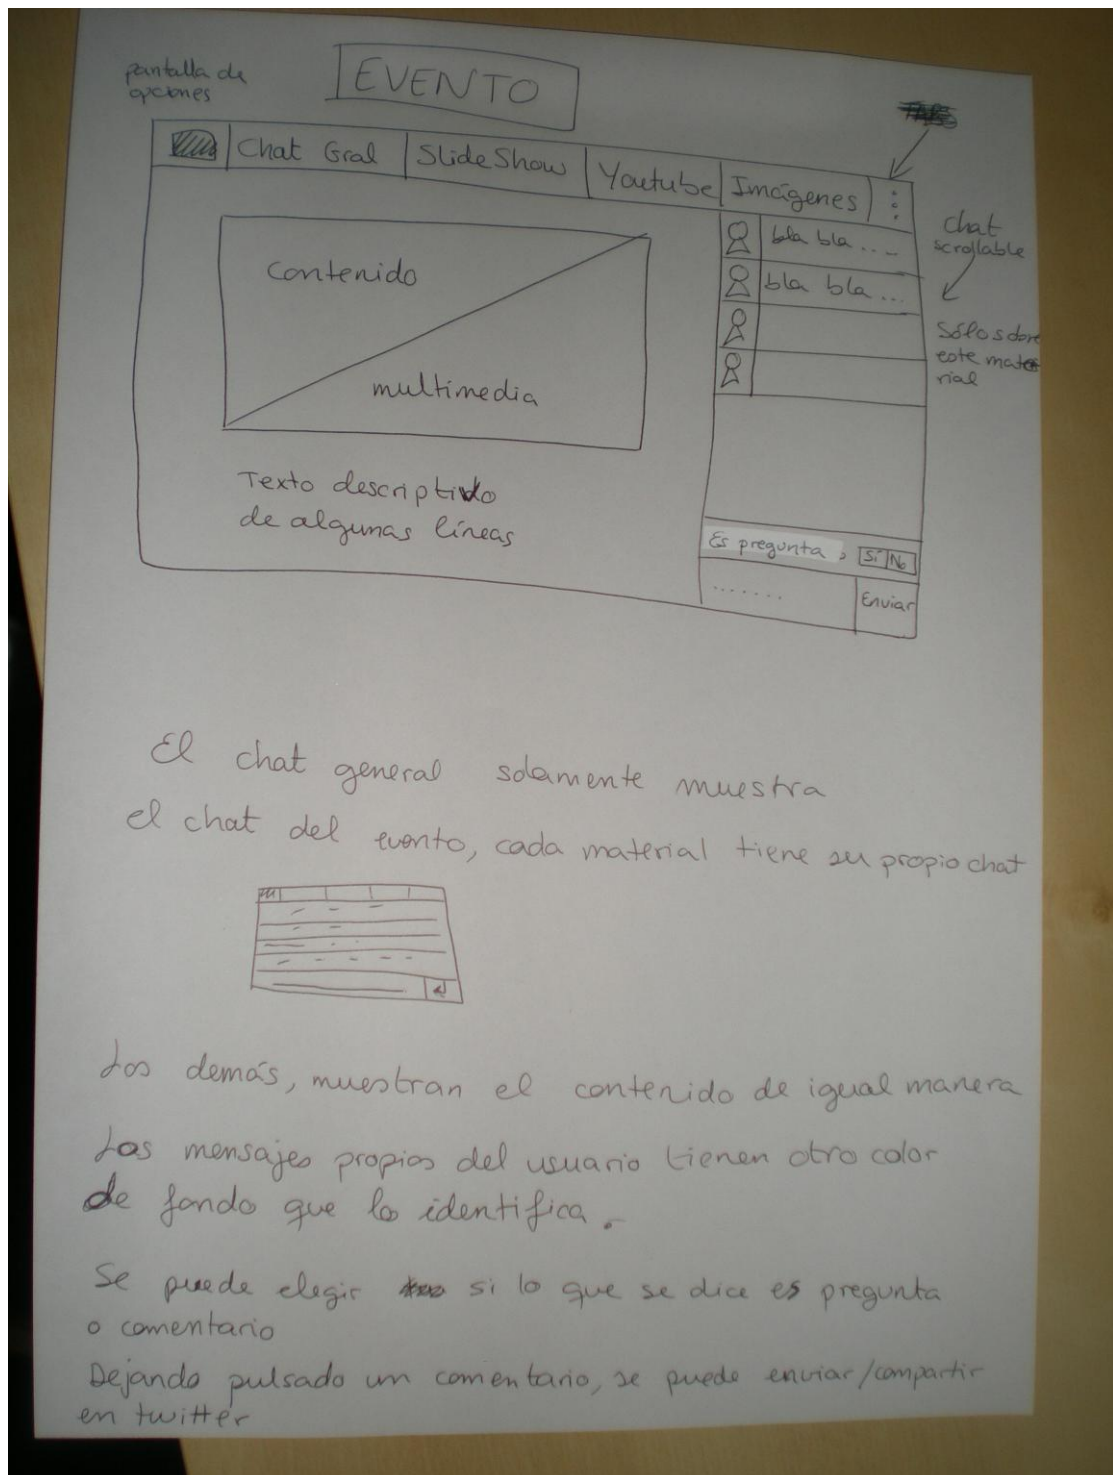 pantalla de
opciones
EVENTO
Chat Gral
SlideShow
Youtube
Imágenes
chat
scrollable
Sólo sobre
este mate
rial
bla bla ....
bla bla ...
contenido
multimedia
Texto descriptivo
de algunas líneas
Es pregunta
Sí No
.......
Enviar
El chat general solamente muestra
el chat del evento, cada material tiene su propio chat
Los demás, muestran el contenido de igual manera
Los mensajes propios del usuario tienen otro color
de fondo que lo identifica.
Se puede elegir si lo que se dice es pregunta
o comentario
Dejando pulsado un comentario, se puede enviar/compartir
en twitter